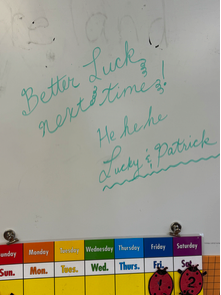 Better Luck
next time!
He he he
Lucky & Patrick
unday Monday Tuesday Wednesday Thursday Friday Saturday
Sun. Mon. Tues. Wed. Thurs. Fri. Sat.
1 2